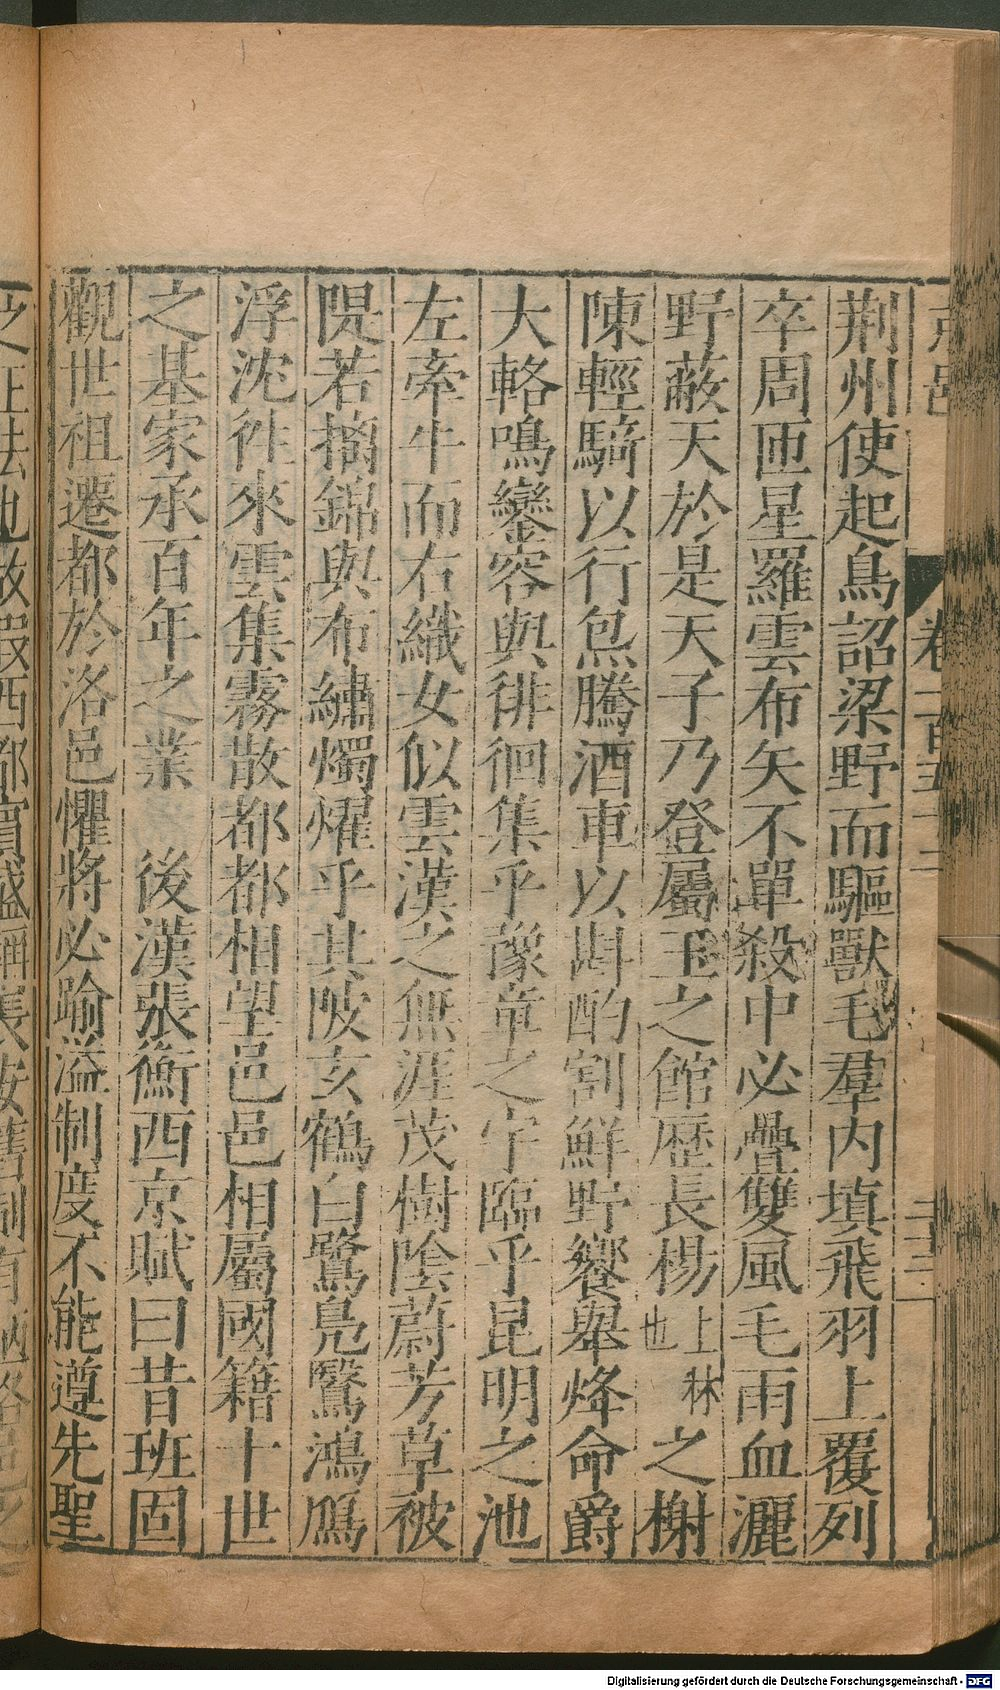 荆州使起鳥詔梁野而驅獸毛羣内填飛羽上覆列
卒周匝星羅雲布矢不單殺中必疊雙風毛雨血灑
野蔽天於是天子乃登屬玉之館歴長楊上林也之榭
陳輕騎以行炰騰酒車以斟酌割鮮野饗舉烽命爵
大輅鳴鑾容與徘徊集乎豫章之宇臨乎昆明之池
左牽牛而右織女似雲漢之無涯茂樹隂蔚芳草被
隄若摛錦與布繡燭燿乎其陂玄鶴白鷺鳧鷖鴻鴈
浮沈徃來雲集霧散都都相望邑邑相屬國籍十世
之基家承百年之業 後漢張衡西京賦曰昔班固
觀世祖遷都於洛邑懼將必踰溢制度不能遵先聖
Digitalisierung gefördert durch die Deutsche Forschungsgemeinschaft - DFG